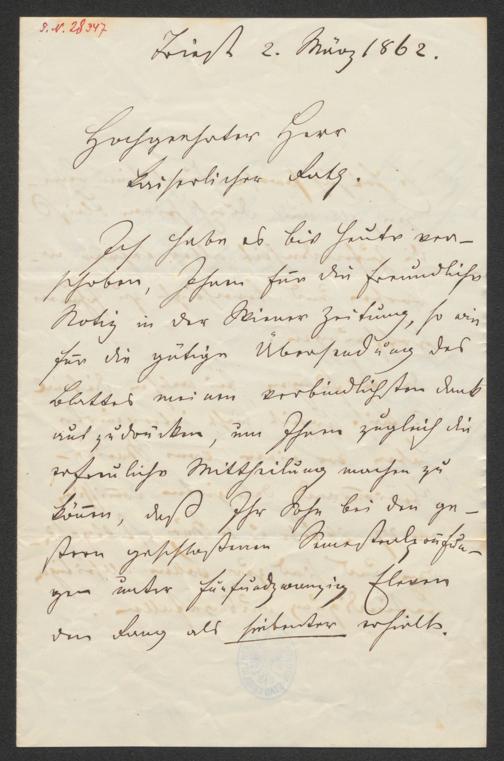 I. N. 28347
Triest 2. März 1862.
Hochgeehrter Herr
Kaiserlicher Rath.
Ich habe es bis heute ver-
schoben, Ihnen für die freundliche
Notiz in der Wiener Zeitung, so wie
für die gütige Übersendung des
Blattes meinen verbindlichsten Dank
auszudrücken, um Ihnen zugleich die
erfreuliche Mittheilung machen zu
können, daß Ihr Sohn bei den ge-
stern geschloßenen Semestralprüfun-
gen unter fünfundzwanzig Eleven
den Rang als siebenter erhielt.